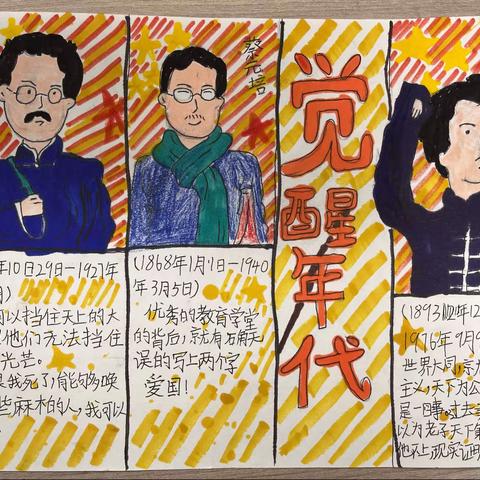 年10日29日-1927年
月)
以挡住天上的大
他们无法挡住
光芒。
我死了,能够唤
些麻木的人,我可以
蔡元培
(1868年1月1日-1940
年3月5日)
优秀的教育学堂
的背后,就有
误的写上两个字
爱国!
觉醒年代
(1893年12
1976年9月9
世界大同,
主义,天下为公
是一事,过去
以为老子天下第